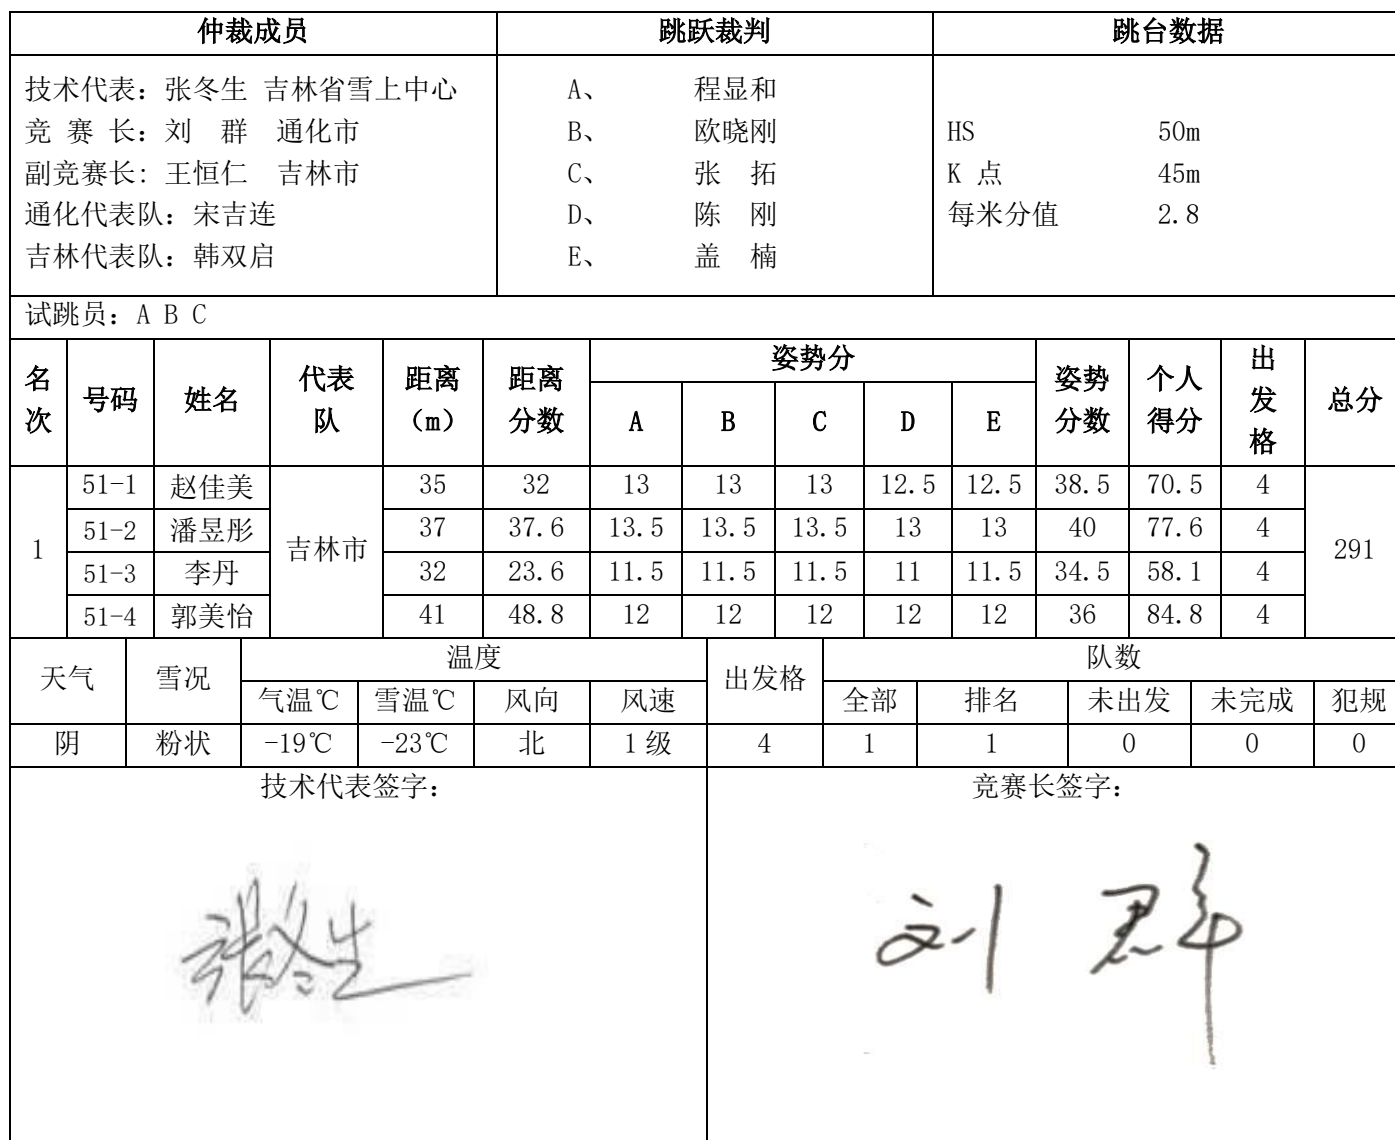 仲裁成员 跳跃裁判 跳台数据
技术代表：张冬生 吉林省雪上中心
竞 赛 长：刘 群 通化市
副竞赛长：王恒仁 吉林市
通化代表队：宋吉连
吉林代表队：韩双启
A、 程显和
B、 欧晓刚
C、 张 拓
D、 陈 刚
E、 盖 楠
HS 50m
K 点 45m
每米分值 2.8
试跳员：A B C
名次 号码 姓名 代表队 距离（m） 距离分数 姿势分 姿势分数 个人得分 出发格 总分
A B C D E
1 吉林市 291
51-1 赵佳美 35 32 13 13 13 12.5 12.5 38.5 70.5 4
51-2 潘昱彤 37 37.6 13.5 13.5 13.5 13 13 40 77.6 4
51-3 李丹 32 23.6 11.5 11.5 11.5 11 11.5 34.5 58.1 4
51-4 郭美怡 41 48.8 12 12 12 12 12 36 84.8 4
天气 雪况 温度 出发格 队数
气温℃ 雪温℃ 风向 风速 全部 排名 未出发 未完成 犯规
阴 粉状 -19℃ -23℃ 北 1级 4 1 1 0 0 0
技术代表签字： 竞赛长签字：
张冬生 刘群